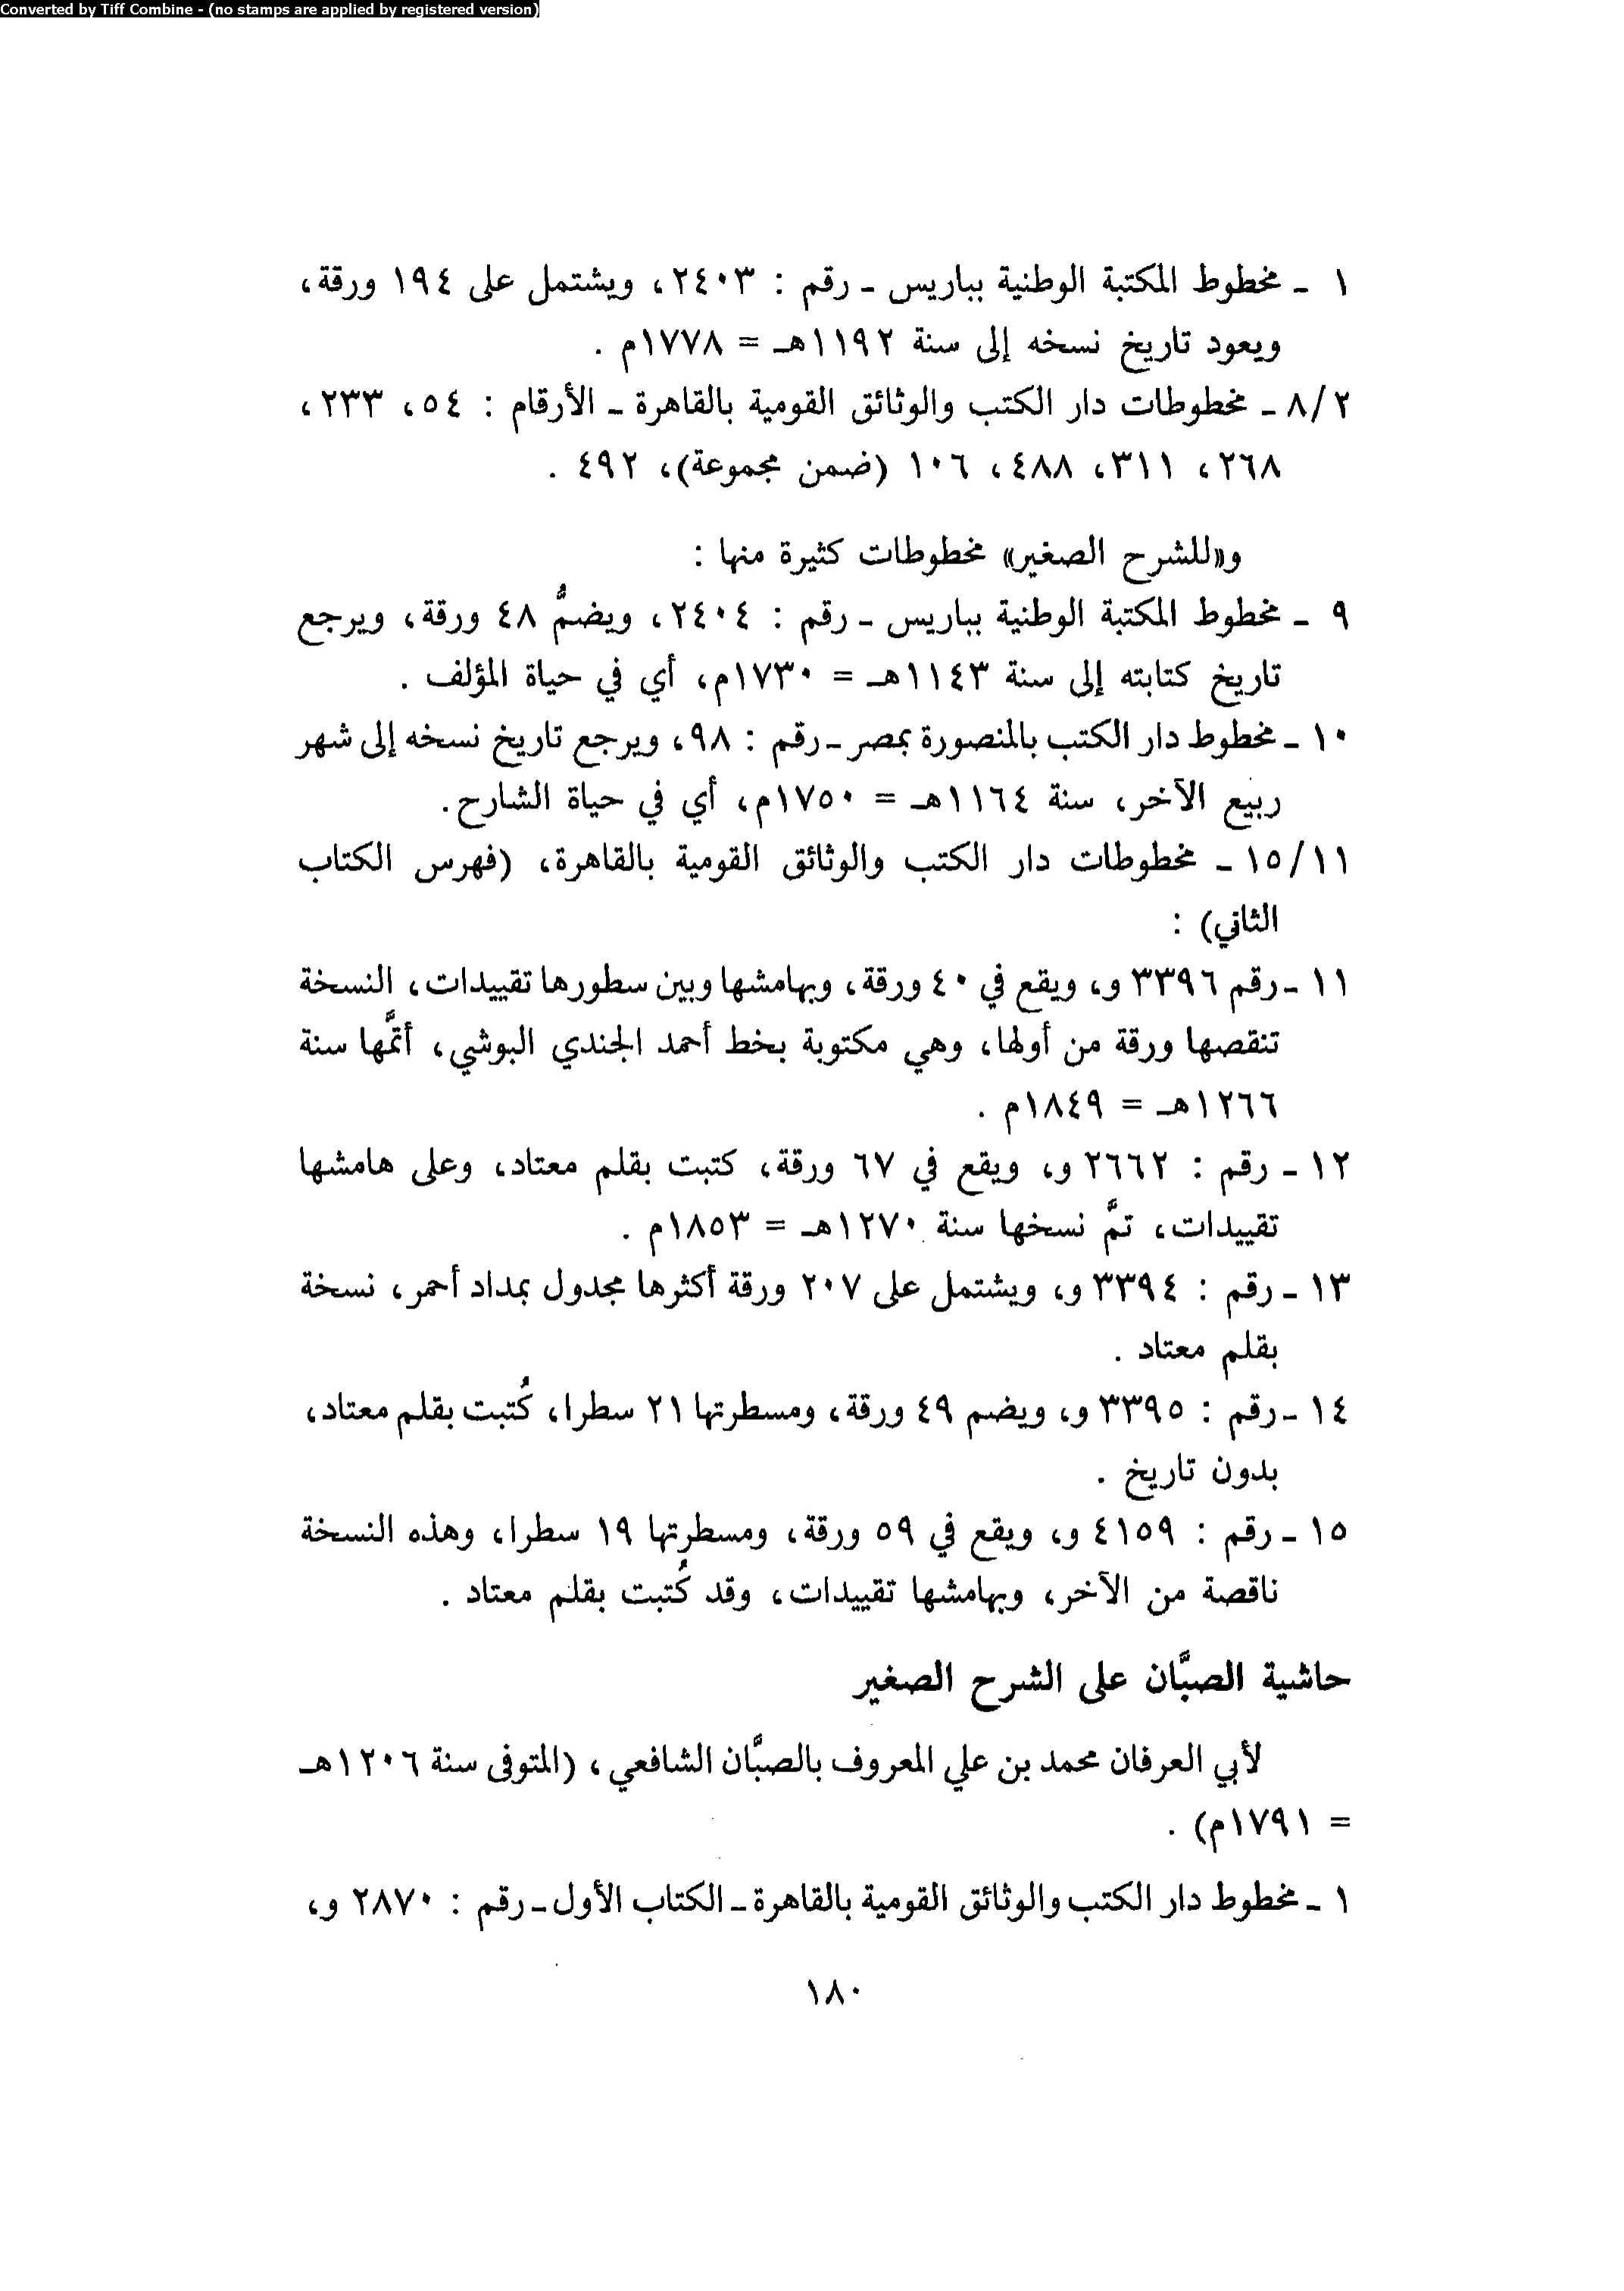 Converted by Tiff Combine - (no stamps are applied by registered version)
١ - مخطوط المكتبة الوطنية بباريس - رقم : ٢٤٠٣، ويشتمل على ١٩٤ ورقة،
ويعود تاريخ نسخه إلى سنة ١١٩٢هـ = ١٧٧٨م .
٨/٢ - مخطوطات دار الكتب والوثائق القومية بالقاهرة - الأرقام : ٥٤، ٢٣٣،
٢٦٨، ٣١١، ٤٨٨، ١٠٦ (ضمن مجموعة)، ٤٩٢ .
و«للشرح الصغير» مخطوطات كثيرة منها :
٩ - مخطوط المكتبة الوطنية بباريس - رقم : ٢٤٠٤، ويضمُّ ٤٨ ورقة، ويرجع
تاريخ كتابته إلى سنة ١١٤٣هـ = ١٧٣٠م، أي في حياة المؤلف .
١٠ - مخطوط دار الكتب بالمنصورة بمصر - رقم : ٩٨، ويرجع تاريخ نسخه إلى شهر
ربيع الآخر، سنة ١١٦٤هـ = ١٧٥٠م، أي في حياة الشارح.
١٥/١١ - مخطوطات دار الكتب والوثائق القومية بالقاهرة، (فهرس الكتاب
الثاني) :
١١ - رقم ٣٣٩٦ و، ويقع في ٤٠ ورقة، وبهامشها وبين سطورها تقييدات، النسخة
تنقصها ورقة من أولها، وهي مكتوبة بخط أحمد الجندي البوشي، أتمَّها سنة
١٢٦٦هـ = ١٨٤٩م .
١٢ - رقم : ٢٦٦٢ و، ويقع في ٦٧ ورقة، كتبت بقلم معتاد، وعلى هامشها
تقييدات، تمَّ نسخها سنة ١٢٧٠هـ = ١٨٥٣م .
١٣ - رقم : ٣٣٩٤ و، ويشتمل على ٢٠٧ ورقة أكثرها مجدول بمداد أحمر، نسخة
بقلم معتاد .
١٤ - رقم : ٣٣٩٥ و، ويضم ٤٩ ورقة، ومسطرتها ٢١ سطرا، كُتبت بقلم معتاد،
بدون تاريخ .
١٥ - رقم : ٤١٥٩ و، ويقع في ٥٩ ورقة، ومسطرتها ١٩ سطرا، وهذه النسخة
ناقصة من الآخر، وبهامشها تقييدات، وقد كُتبت بقلم معتاد .
حاشية الصبَّان على الشرح الصغير
لأبي العرفان محمد بن علي المعروف بالصبَّان الشافعي، (المتوفى سنة ١٢٠٦هـ
= ١٧٩١م) .
١ - مخطوط دار الكتب والوثائق القومية بالقاهرة - الكتاب الأول - رقم : ٢٨٧٠ و،
١٨٠